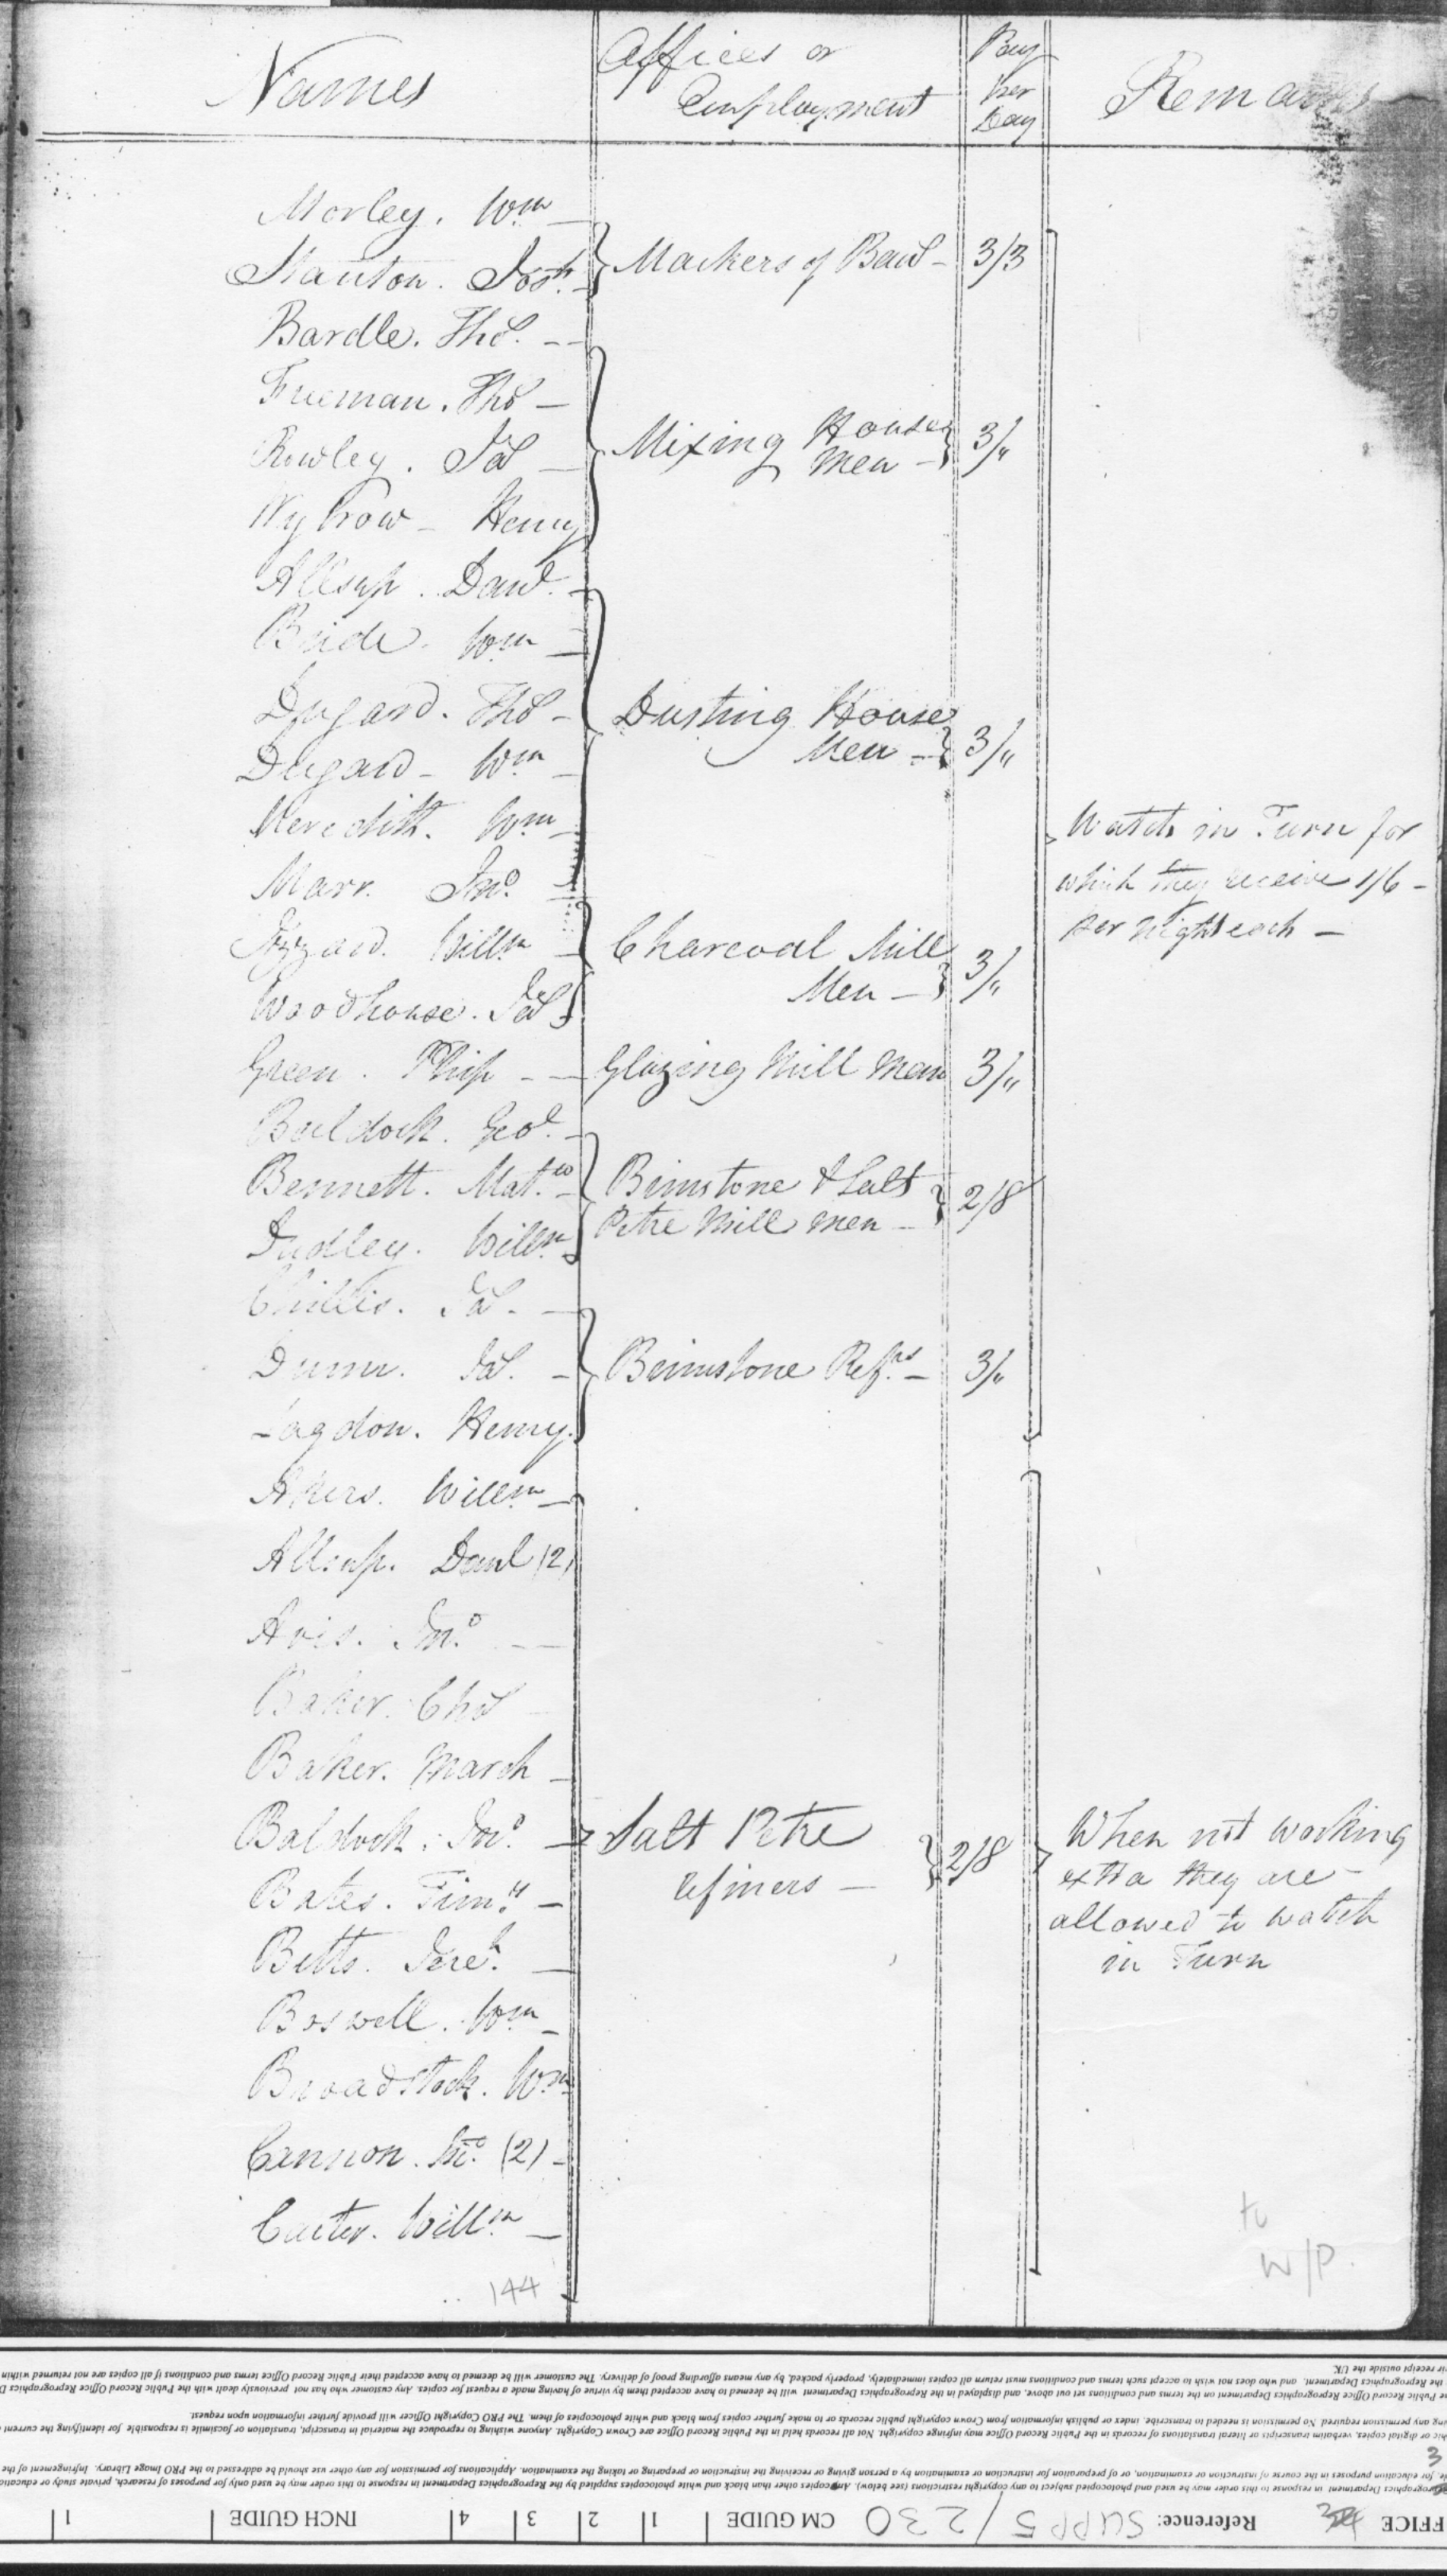 Names
Offices or
Employment
Pay
per
Day
Remarks
Morley. Wm
Stanton. Josh. } Makers of Band - 3/3
Bardle. Thos. -
Freeman. Thos -
Rowley. Jas - Mixing House
Men - 3/"
Wybrow - Henry
Allsup. Danl. -
Bride. Wm -
Dugard. Thos - Dusting House
Men - 3/"
Dugard - Wm -
Meredith. Wm -
Marr. Jno. -
Watch in Turn for
which they receive 1/6 -
per night each -
Izzard. Willm - Charcoal Mill
Men - 3/"
Woodhouse. Jas
Green. Philip - Glazing Mill Man 3/"
Baldock. Geo. -
Bennett. Matw. - Brimstone & Salt
Petre Mill Men - 2/8
Dudley. Willm
Chillis. Jas. -
Dunn. Jas. - Brimstone Refrs - 3/"
Lagdon. Henry.
Akers. Willm -
Allsup. Danl (2)
Avis. Jno. -
Baker. Chs -
Baker. March -
Baldock. Jno. - Salt Petre
refiners - 2/8
When not working
extra they are
allowed to watch
in Turn
Bates. Timy. -
Betts. Jereh. -
Boswell. Wm -
Broadstock. Wm
Cannon. Jno. (2) -
Carter. Willm -
144
to
W/P.
ir receipt outside the UK.
3
FFICE
Reference: SUPP 5/230
CM GUIDE 1 2 3 4
INCH GUIDE 1